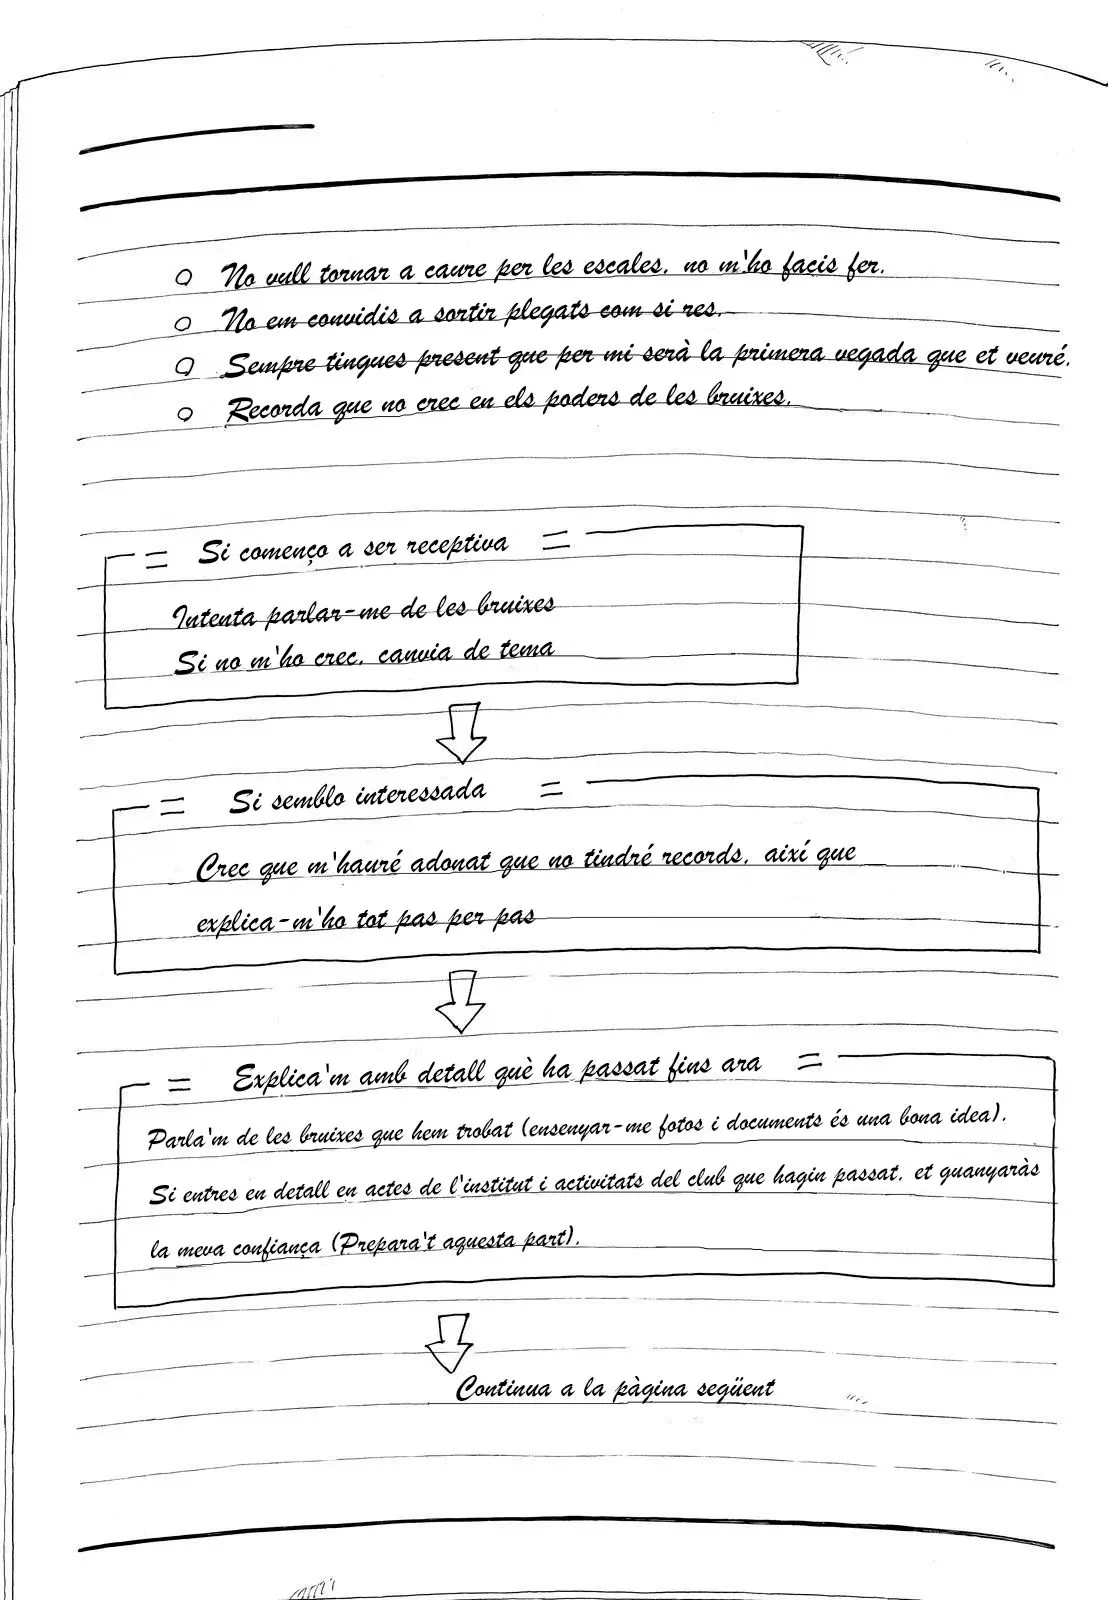 No vull tornar a caure per les escales, no m'ho facis fer.
No em convidis a sortir plegats com si res.
Sempre tingues present que per mi serà la primera vegada que et veuré.
Recorda que no crec en els poders de les bruixes.
Si començo a ser receptiva
Intenta parlar-me de les bruixes
Si no m'ho crec, canvia de tema
Si semblo interessada
Crec que m'hauré adonat que no tindré records, així que
explica-m'ho tot pas per pas
Explica'm amb detall què ha passat fins ara
Parla'm de les bruixes que hem trobat (ensenyar-me fotos i documents és una bona idea).
Si entres en detall en actes de l'institut i activitats del club que hagin passat, et guanyaràs
la meva confiança (Prepara't aquesta part).
Continua a la pàgina següent